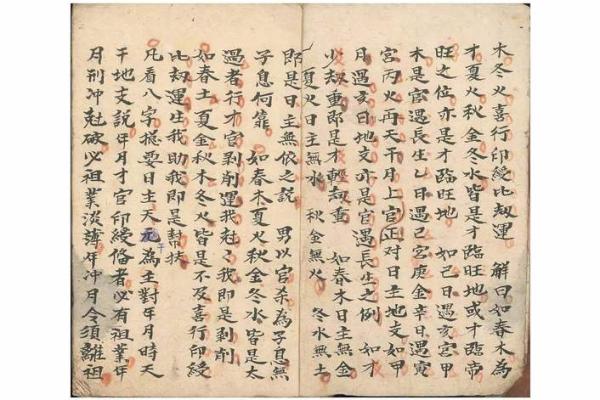 木冬火喜行印綬比劫運 解曰如春木為
才夏火秋金冬水皆是才臨旺地或才臨帝
旺之位亦是才臨旺地 如己日遇亥宮甲
木是官遇長生乙日遇己宮庚金辛日遇寅
宮丙火再天干月上官正對日主地支如甲
月遇亥日地支亦是官遇長生之例 如才
少劫重即是才輕劫重 如春木日主無金
夏火日主無水 秋金無火 冬水無土
即是日主無依之說 男以官杀為子息無
子息何靠 如春木夏火秋金冬水皆是太
過者行才官剥削運我尅了我即是剥削
如春土夏金秋木冬火皆是不及喜行印綬
比劫運生我助我即是幫扶
凡看八字提要日主天元為主對年月時天
干地支説年月才官印綬俻者必有祖業年
月刑冲尅破必祖業淡薄年冲月令須離祖